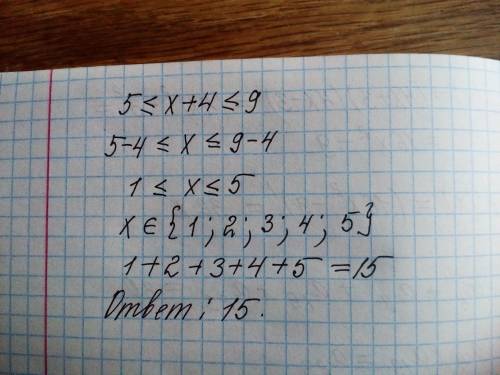 5 ≤ x+4 ≤ 9
5-4 ≤ x ≤ 9-4
1 ≤ x ≤ 5
x ∈ {1; 2; 3; 4; 5}
1+2+3+4+5 = 15
Ответ: 15.